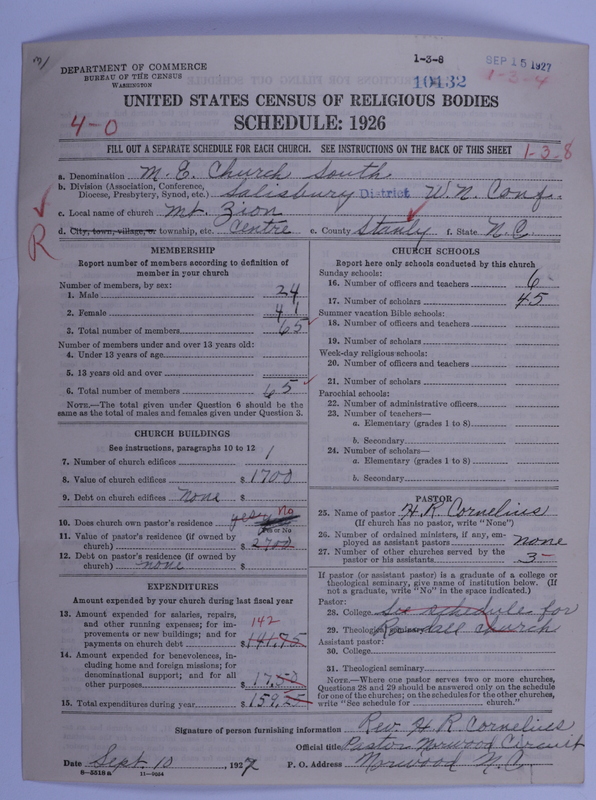 DEPARTMENT OF COMMERCE
BUREAU OF THE CENSUS
WASHINGTON
1-3-8
SEP 15 1927
10432
1-3-4
UNITED STATES CENSUS OF RELIGIOUS BODIES
4-0
SCHEDULE: 1926
FILL OUT A SEPARATE SCHEDULE FOR EACH CHURCH. SEE INSTRUCTIONS ON THE BACK OF THIS SHEET
1-3-8
a. Denomination M. E. Church South
b. Division (Association, Conference, Diocese, Presbytery, Synod, etc.) Salisbury District W. N. Conf.
c. Local name of church Mt. Zion
d. City, town, village, or township, etc. Centre e. County Stanly f. State N. C.
R
MEMBERSHIP
Report number of members according to definition of
member in your church
Number of members, by sex:
1. Male 24
2. Female 41
3. Total number of members 65
Number of members under and over 13 years old:
4. Under 13 years of age
5. 13 years old and over
6. Total number of members 65
NOTE.—The total given under Question 6 should be the
same as the total of males and females given under Question 3.
CHURCH BUILDINGS
See instructions, paragraphs 10 to 12
7. Number of church edifices 1
8. Value of church edifices $ 1700
9. Debt on church edifices none $
10. Does church own pastor's residence yes no
Yes or No
11. Value of pastor's residence (if owned by
church) $ 2700
12. Debt on pastor's residence (if owned by
church) none $
EXPENDITURES
Amount expended by your church during last fiscal year
13. Amount expended for salaries, repairs,
and other running expenses; for im-
provements or new buildings; and for
payments on church debt 142 $ 141.75
14. Amount expended for benevolences, in-
cluding home and foreign missions; for
denominational support; and for all
other purposes $ 17.50
15. Total expenditures during year $ 159.25
CHURCH SCHOOLS
Report here only schools conducted by this church
Sunday schools:
16. Number of officers and teachers 6
17. Number of scholars 45
Summer vacation Bible schools:
18. Number of officers and teachers
19. Number of scholars
Week-day religious schools:
20. Number of officers and teachers
21. Number of scholars
Parochial schools:
22. Number of administrative officers
23. Number of teachers—
a. Elementary (grades 1 to 8)
b. Secondary
24. Number of scholars—
a. Elementary (grades 1 to 8)
b. Secondary
PASTOR
25. Name of pastor H. R. Cornelius
(If church has no pastor, write "None")
26. Number of ordained ministers, if any, em-
ployed as assistant pastors none
27. Number of other churches served by the
pastor or his assistants 3
If pastor (or assistant pastor) is a graduate of a college or
theological seminary, give name of institution below. (If
not a graduate, write "No" in the space indicated.)
Pastor:
28. College See schedule for
29. Theological seminary Randall church
Assistant pastor:
30. College
31. Theological seminary
NOTE.—Where one pastor serves two or more churches,
Questions 28 and 29 should be answered only on the schedule
for one of the churches; on the schedules for the other churches,
write "See schedule for church."
Signature of person furnishing information Rev. H. R. Cornelius
Official title Pastor Norwood Circuit
Date Sept. 10, 1927 P. O. Address Norwood N. C.
8-5518a 11-9064